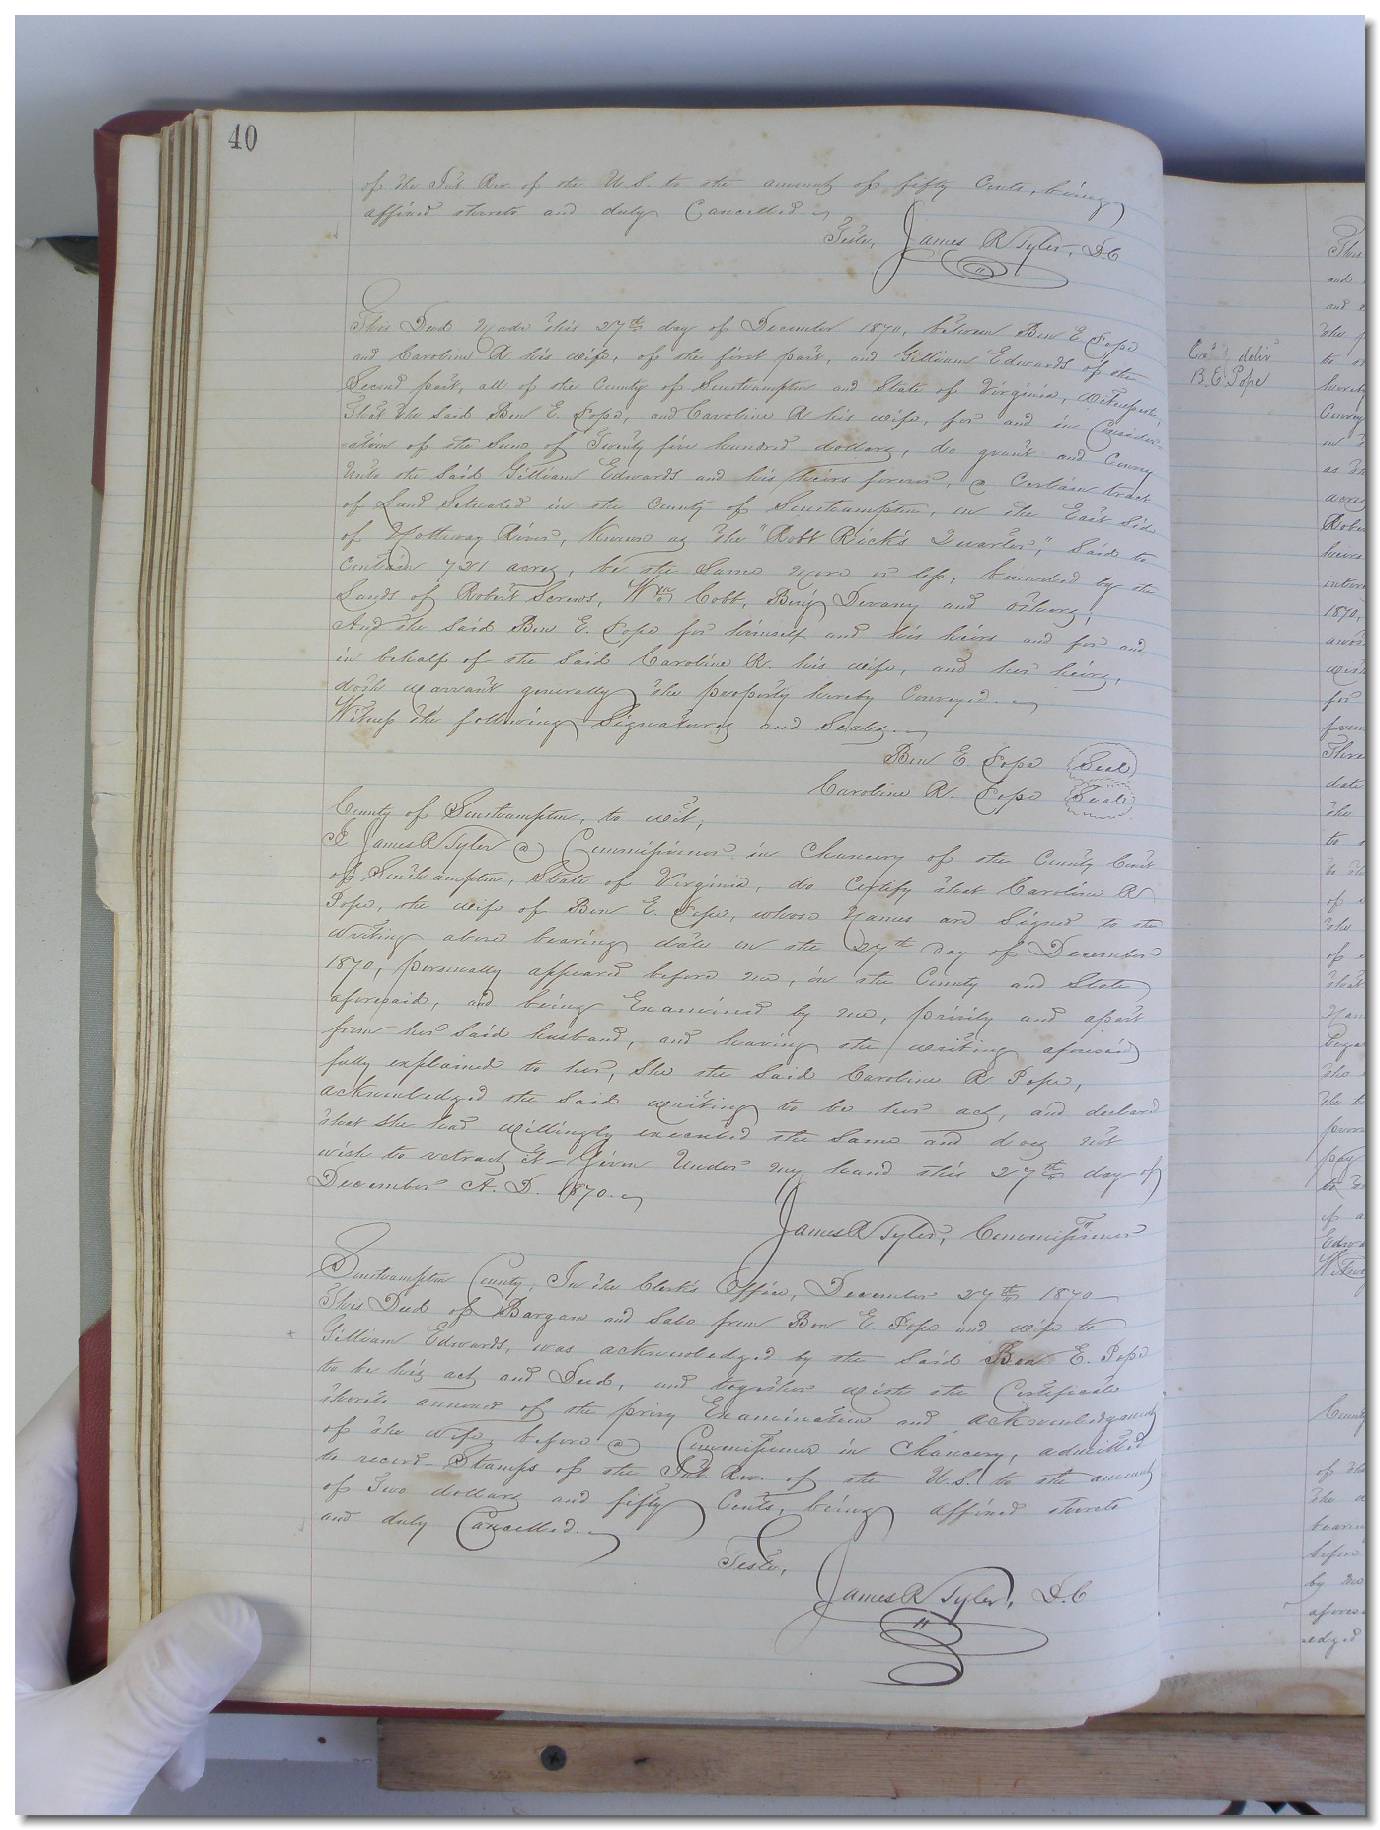 40
of the Int. Rev. of the U.S. to the amount of fifty Cents, being
affixed thereto and duly Cancelled.
Teste, James R Tyler, D.C
This Deed Made this 27th day of December 1870, between Ben E. Pope
and Caroline R his wife, of the first part, and Gilliam Edwards of the
Second part, all of the County of Southampton and State of Virginia, Witnesseth:
That the Said Ben E. Pope, and Caroline R his wife, for and in Consider-
=ation of the Sum of Twenty five hundred dollars, do grant and Convey
Unto the Said Gilliam Edwards and his heirs forever, a Certain tract
of Land Situated in the County of Southampton, on the East Side
of Nottoway River, Known as the "Robt Rick's Quarter," Said to
Contain 721 acres, be the Same more or less; bounded by the
Lands of Robert Screws, Wm Cobb, Benj Devany and others;
And the Said Ben E. Pope for himself and his heirs and for and
in behalf of the Said Caroline R. his wife, and her heirs,
doth warrant generally the property hereby Conveyed.
Witness the following Signatures and Seals.
Ben E. Pope Seal
Caroline R. Pope Seal
County of Southampton, to wit,
I James R Tyler a Commissioner in Chancery of the County Court
of Southampton, State of Virginia, do Certify that Caroline R
Pope, the wife of Ben E. Pope, whose Names are Signed to the
writing above bearing date on the 27th day of December
1870, personally appeared before me, in the County and State
aforesaid, and being Examined by me, privily and apart
from her Said husband, and having the writing aforesaid
fully explained to her, She the Said Caroline R Pope,
acknowledged the Said writing to be her act, and declared
that She had willingly executed the Same and does not
wish to retract it - Given Under my hand this 27th day of
December A.D. 1870.
James R Tyler, Commissioner
Southampton County, In the Clerk's Office, December 27th 1870
This Deed of Bargain and Sale from Ben E. Pope and wife to
Gilliam Edwards, was acknowledged by the Said Ben E. Pope
to be his act and Deed, and together with the Certificate
thereto annexed of the privy Examination and acknowledgment
of the wife, before a Commissioner in Chancery, admitted
to record. Stamps of the Int. Rev. of the U.S. to the amount
of Two dollars and fifty Cents, being affixed thereto
and duly Cancelled.
Teste,
James R Tyler, D.C
deliv
B. E. Pope
This
and
and
the
to
hereby
Convey
as
acres
1870,
for
date
the
to
of
the
pay
to
County
the
by me